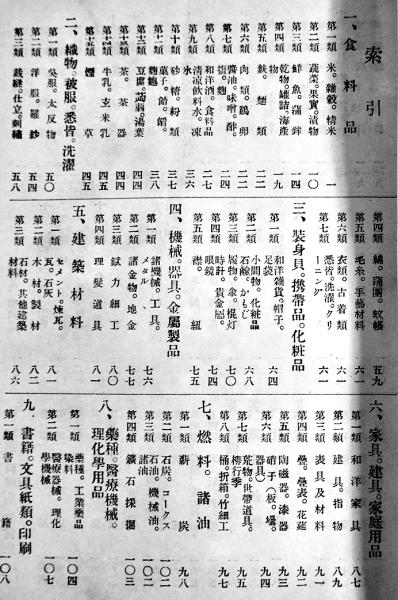 索引
一、食料品
第一類 米。雑穀。精米 一
第二類 蔬菜。果實。漬物 一〇
第三類 鮮魚。蒲鉾 一四
第四類 乾物。罐詰。海產物 一九
第五類 麩。麵類 二二
第六類 肉類。鷄卵 二二
第七類 醬油。味噌。酢 二四
第八類 和洋酒。食料品 二六
第九類 清涼飲料水。凍氷 三六
第十類 砂糖。粉類 三七
第十一類 菓子。飴。麵麭 三八
第十二類 豆腐。蒟蒻。湯葉 四四
第十三類 茶。茶器 四四
第十四類 牛乳。玄米乳 四五
第十五類 煙草 四五
二、織物。被服。悉皆。洗濯
第一類 吳服。太反物 五〇
第二類 洋服。羅紗 五四
第三類 裁縫。仕立。刺繡 五八
第四類 綿。蒲團。蚊帳 五九
第五類 毛糸。手藝材料 六一
第六類 衣類。古着類 六一
第七類 悉皆。洗濯。クリーニング 六一
三、裝身具。携帶品。化粧品
第一類 和洋雜貨。帽子。足袋 六四
第二類 小間物。化粧品。石鹼。かもじ 六八
第三類 履物。傘。提灯 七〇
第四類 時計。貴金屬。眼鏡 七四
第五類 襟。紐 七五
四、機械。器具。金屬製品
第一類 諸機械。工具。メタル 七六
第二類 諸金物。地金 七七
第三類 鉄力細工 八〇
第四類 理髮道具 八一
五、建築材料
第一類 セメント。煉瓦。瓦。石灰 八一
第二類 木材。製材 八二
第三類 石材。其他建築材料 八六
六、家具。建具。家庭用品
第一類 和洋家具 八七
第二類 建具。指物 八九
第三類 表具及材料 九一
第四類 疊。疊表。花莚 九二
第五類 陶磁器。漆器 九三
第六類 硝子(板。壜。器具) 九四
第七類 荒物。世帶道具。柳行李 九五
第八類 桶。折箱。竹細工 九七
七、燃料。諸油
第一類 薪炭 九八
第二類 石炭。コークス 一〇二
第三類 石油。機械油。諸油 一〇二
第四類 鑛石採掘 一〇三
八、藥種。醫療機械。理化學用品
第一類 藥種。工業藥品 染料 一〇四
第二類 醫療器械。理化學機械 一〇七
九、書籍。文具紙類。印刷
第一類 書籍 一〇八